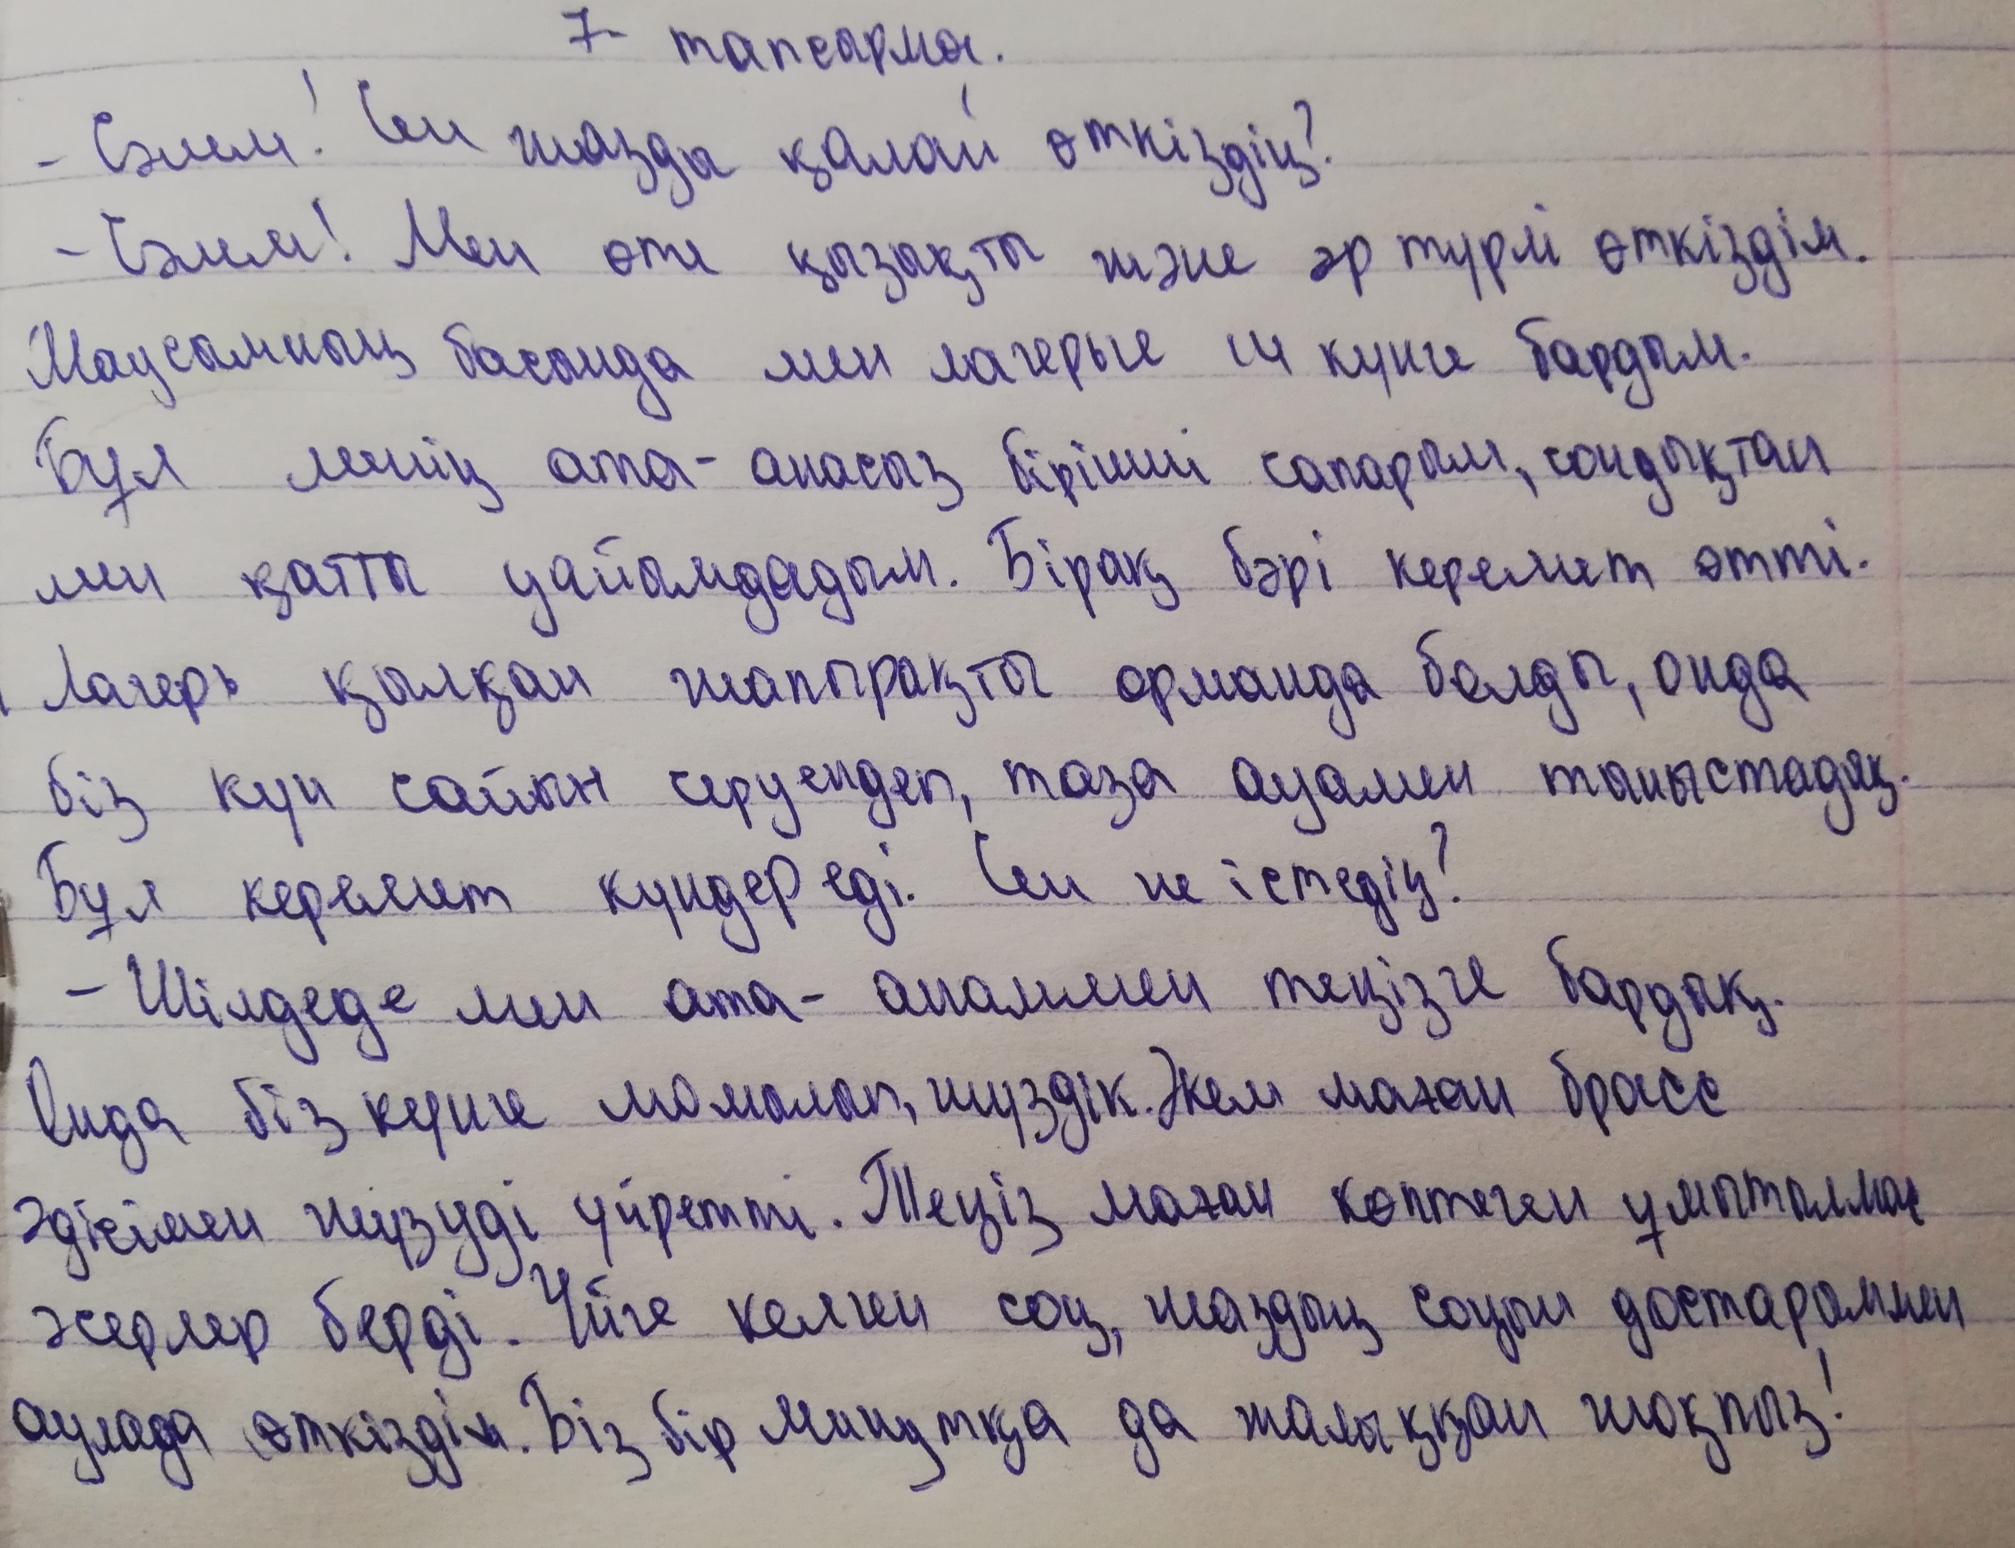 7- тапсырма.
- Сәлем! Сен жазды қалай өткіздің?
- Сәлем! Мен өте қызықты және әр түрлі өткіздім.
Маусымның басында мен лагерьге 14 күнге бардым.
Бұл менің ата-анасыз бірінші сапарым, сондықтан
мен қатты уайымдадым. Бірақ бәрі керемет өтті.
Лагерь қылқан жапырақты орманда болды, онда
біз күн сайын серуендеп, таза ауамен тыныстадық.
Бұл керемет күндер еді. Сен не істедің?
- Шілдеде мен ата- анаммен теңізге бардық.
Онда біз күнге момалап, жүздік. Әкем маған брасс
әдісімен жүзуді үйретті. Теңіз маған көптеген ұмытылмас
әсерлер берді. Үйге келген соң, жаздың соңын достараммен
аулада өткіздім. Біз бір минутқа да жалыққан жоқпыз!